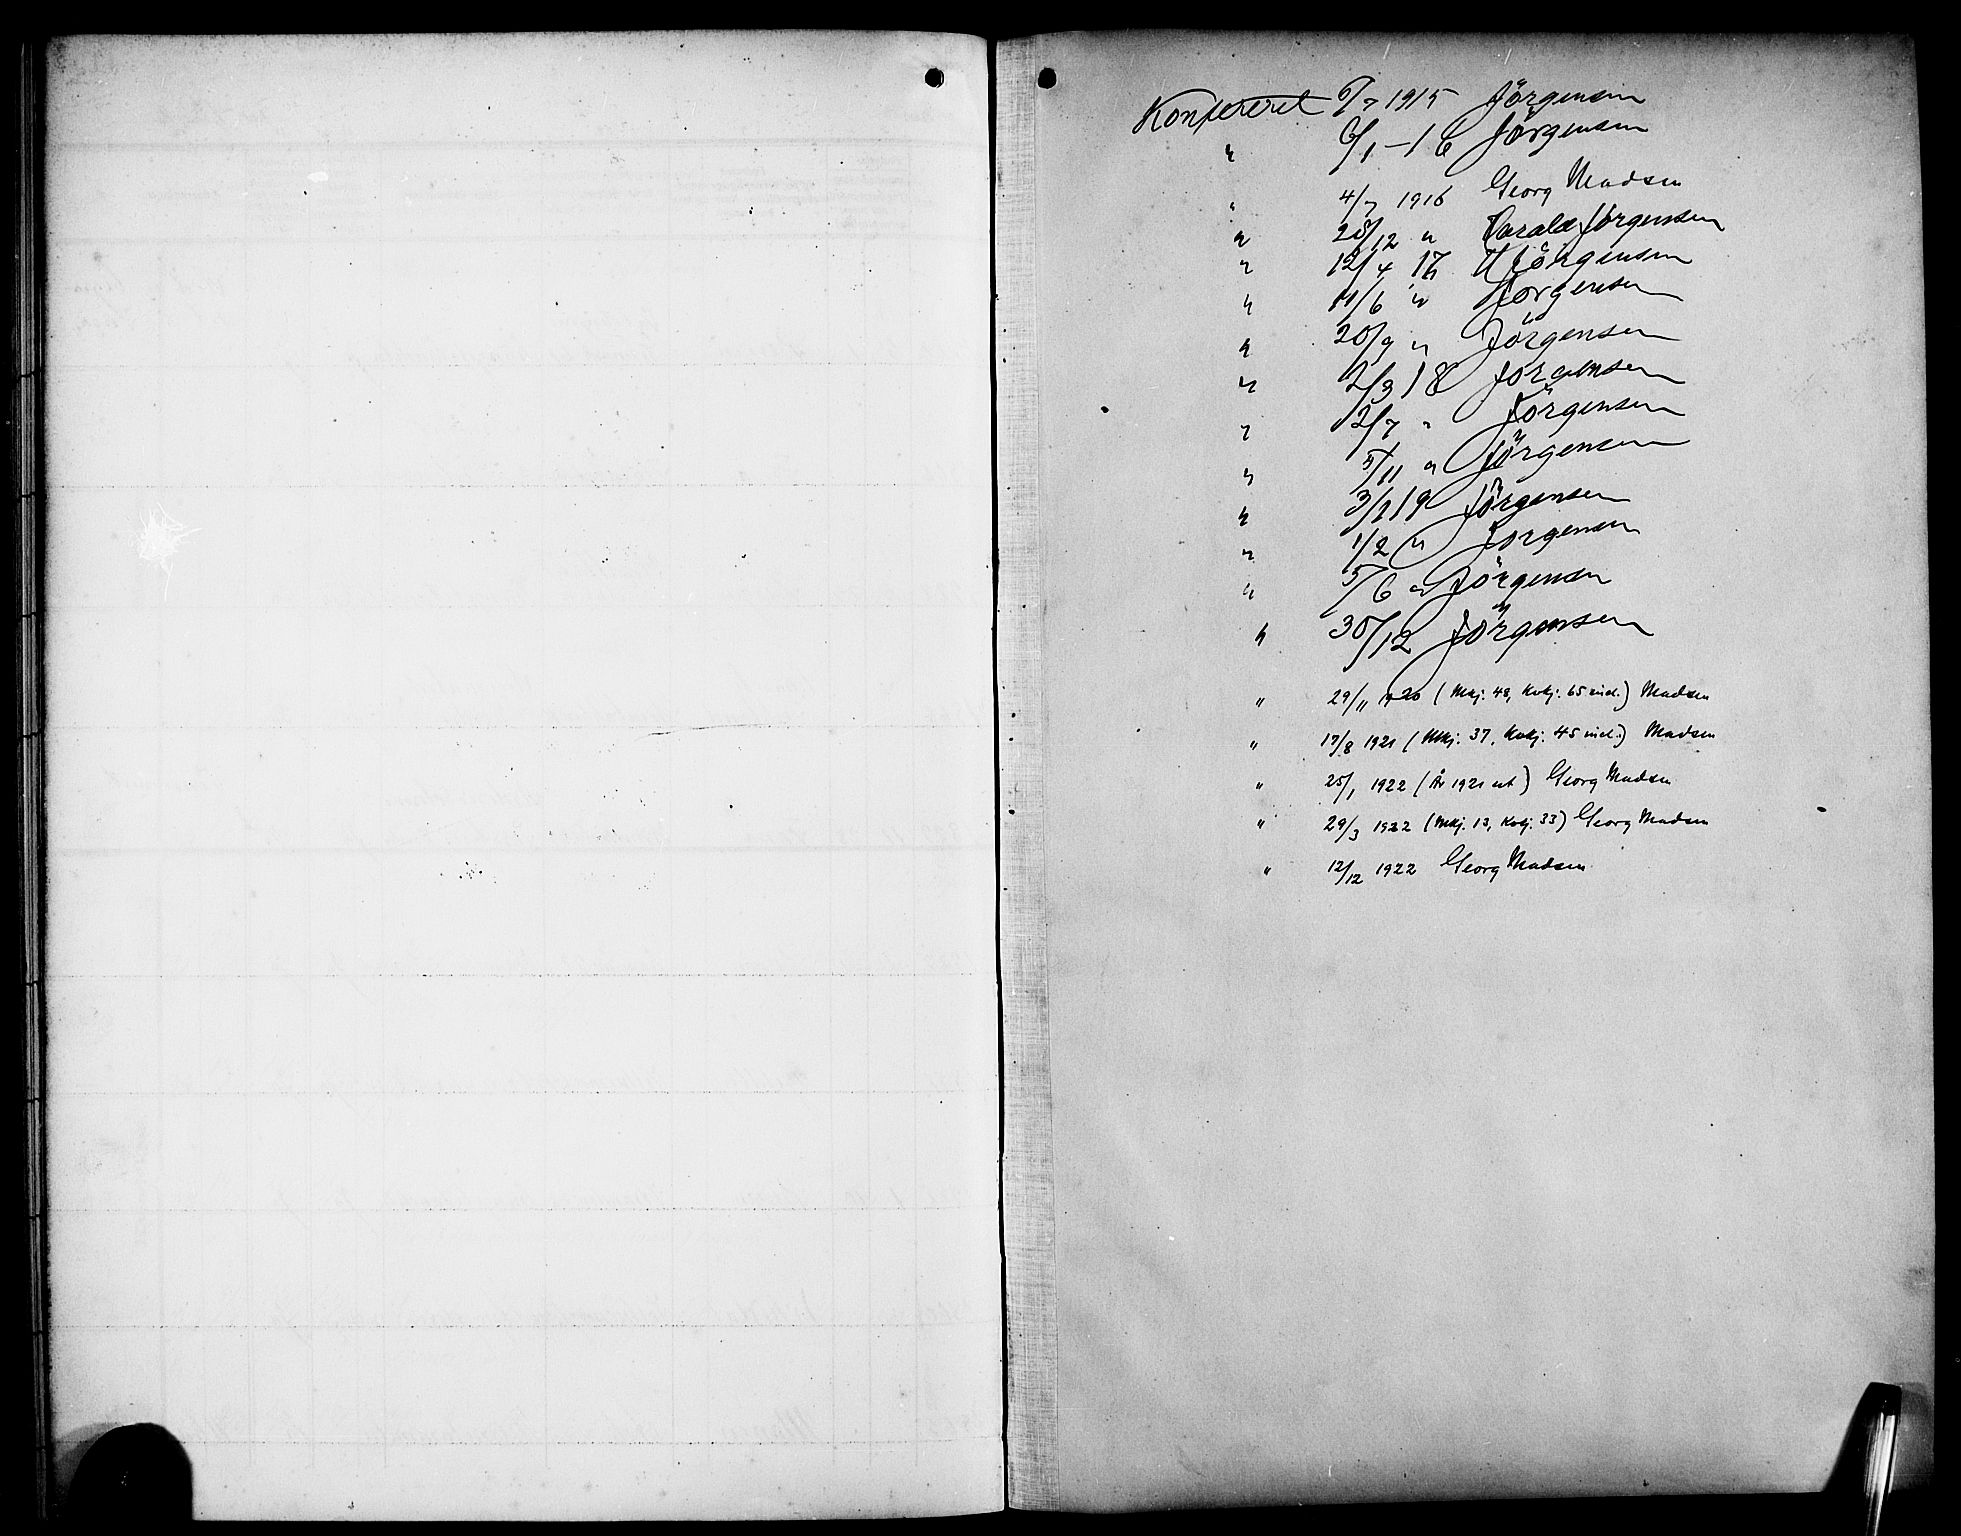 Konfereret 6/7 1915 Jörgensen
" 6/1 - 16 Jörgensen
" 4/7 1916 Georg Madsen
" 28/12 " Harald Jörgensen
" 12/4 17 HJörgensen
" 11/6 " HJörgensen
" 20/9 " Jörgensen
" 2/3 18 Jörgensen
" 2/7 " Jörgensen
" 5/11 " Jörgensen
" 3/1 19 Jörgensen
" 1/2 " Jorgensen
" 5/6 " Jörgensen
" 30/12 Jörgensen
" 29/11 1920 (Mkj. 48, Kvkj. 65 incl.) Madsen
" 17/8 1921 (Mkj. 37, Kvkj. 45 incl.) Madsen
" 25/1 1922 (År 1921 ut) Georg Madsen
" 29/3 1922 (Mkj. 13, Kvkj. 33) Georg Madsen
" 12/12 1922 Georg Madsen